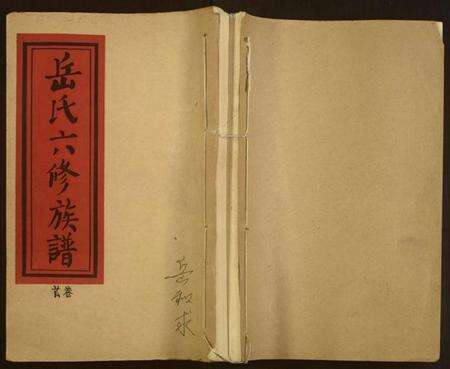 岳氏六修族譜
卷首
岳和求